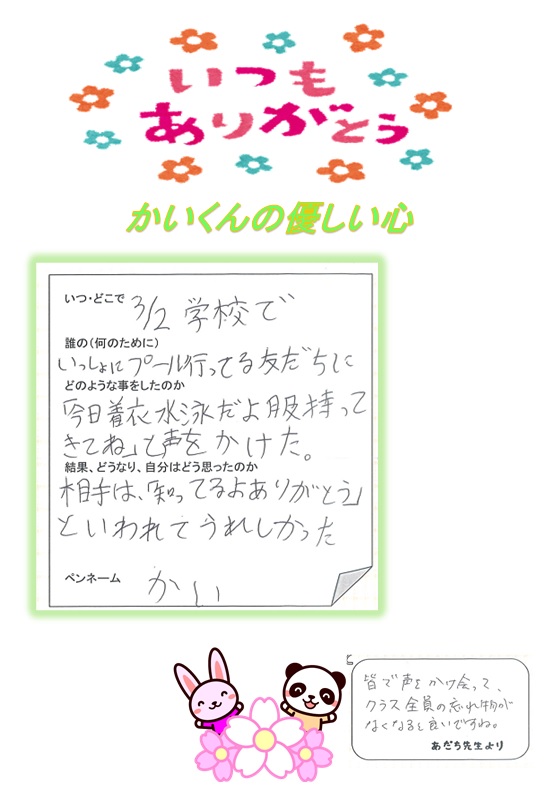 いつも
ありがとう
かいくんの優しい心
いつ・どこで 3/2 学校で
誰の(何のために)
いっしょにプール行ってる友だちに
どのような事をしたのか
「今日着衣水泳だよ服持って
きてね」と声をかけた。
結果、どうなり、自分はどう思ったのか
相手は、「知ってるよありがとう」
といわれてうれしかった
ペンネーム かい
皆で声をかけ合って、
クラス全員の忘れ物が
なくなると良いですね。
あだち先生より